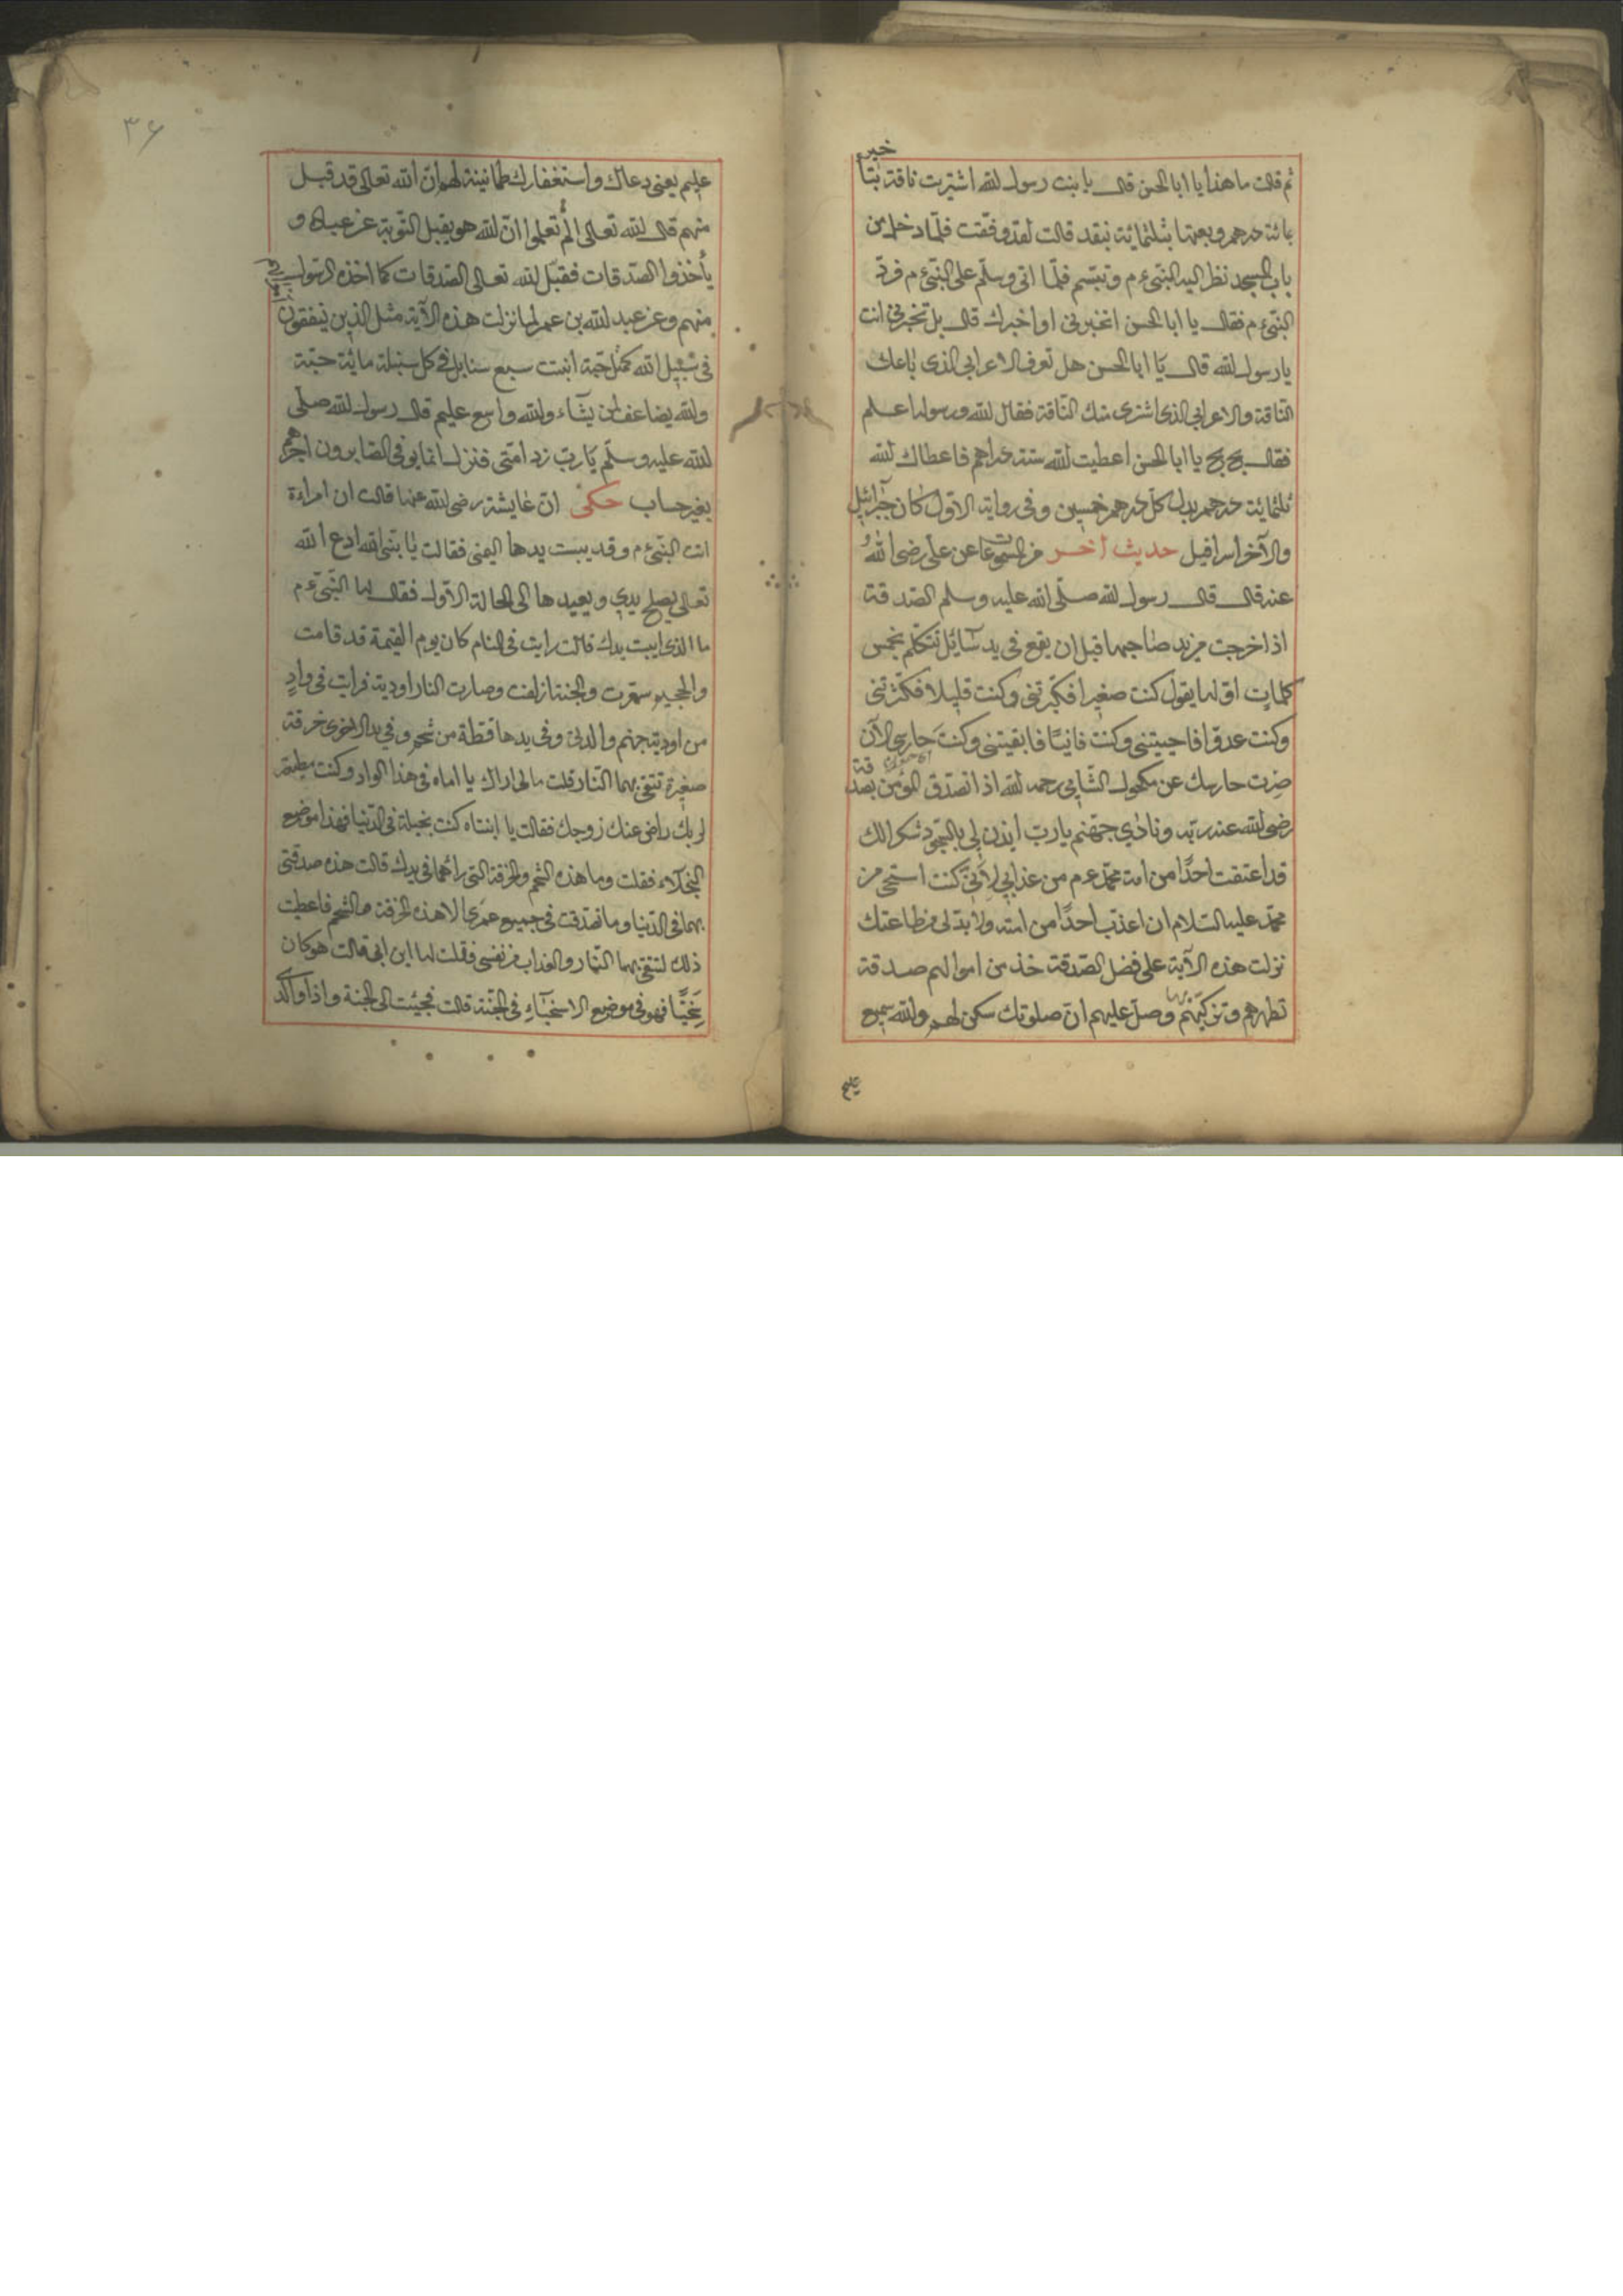 ثم قالت ما هذا يا ابا الحسن قال يا بنت رسول الله اشتريت ناقة بتأخير
بمائة درهم وبعتها بثلثمائة بنقد قالت لقد وفقت فلما دخل من
باب المسجد نظر اليه النبى ءم وتبسم فلما اتى وسلم على النبى ءم فرد
النبى ءم فقال يا ابا الحسن اتخبرنى او اخبرك قال بل تخبرنى انت
يا رسول الله قال يا ابا الحسن هل تعرف الاعرابى الذى باعك
الناقة والاعرابى الذى اشترى منك الناقة فقال الله ورسوله اعلم
فقال بخ بخ يا ابا الحسن اعطيت لله ستة دراهم فاعطاك الله
ثلثمائة درهم بدل كل درهم خمسين وفى رواية الاول كان جبرائيل
والآخر اسرافيل حديث اخر من عن على رضى الله
عنه قال قال رسول الله صلى الله عليه وسلم الصدقة
اذا خرجت من يد صاحبها قبل ان يقع فى يد سائل تتكلم بخمس
كلمات اولها يقول كنت صغيرا فكبرتنى وكنت قليلا فكثرتنى
وكنت عدوا فاحببتنى وكنت فانيا فابقيتنى وكنت حارسى الآن
صرت حارسك عن مكحول الشامى رحمه الله اذا تصدق المؤمن بصدقة
رضى الله عنه ربه ونادى جهنم يا رب ايذن لى بالسجود شكرا لك
قد اعتقت احدا من امة محمد ءم من عذابى لانى كنت استحى من
محمد عليه السلام ان اعذب احدا من امته ولا بد لى من طاعتك
نزلت هذه الآية على فضل الصدقة خذ من اموالهم صدقة
تطهرهم وتزكيهم بها وصل عليهم ان صلوتك سكن لهم والله سميع
عليم
٣٦
عليم يعنى دعاك واستغفارك طمانينة لهم وان الله تعالى قد قبل
منهم قال الله تعالى الم تعلموا ان الله هو يقبل التوبة عن عباده و
يأخذوا الصدقات فقبل الله تعالى الصدقات كما اخذه الرسول
منهم وعن عبد الله بن عمر لما نزلت هذه الآية مثل الذين ينفقون
فى سبيل الله كمثل حبة انبتت سبع سنابل فى كل سنبلة مائة حبة
والله يضاعف لمن يشاء والله واسع عليم قال رسول الله صلى
الله عليه وسلم يا رب زد امتى فنزل انما يوفى الصابرون اجرهم
بغير حساب حكى ان عايشة رضى الله عنها قالت ان امراءة
اتت النبى ءم وقد يبست يدها اليمنى فقالت يا نبى الله ادع الله
تعالى يصلح يدى ويعيدها الى الحالة الاول فقال لها النبى ءم
ما الذى ايبست يدك قالت رايت فى المنام كان يوم القيمة قد قامت
والجحيم سعرت والجنة ازلفت وصارت النار اودية فرايت فى وادٍ
من اودية جهنم والدتى وفى يدها قطة من شحم وفى يد الاخرى خرقة
صغيرة تتقى بهما النار قلت مالى اراك يا اماه فى هذا الواد وكنت مطيعة
لربك راض عنك زوجك فقالت يا ابنتاه كنت بخيلة فى الدنيا فهذا موضع
البخلاء فقلت وما هذه الشحم والخرقة التى راهما فى يدك قالت هذه صدقتى
بهما فى الدنيا وما تصدقت فى جميع عمرى الا هذه الخرقة والشحم فاعطيت
ذلك لتتقى بهما النار والعذاب من نفسى فقلت لها اين ابى قالت هو كان
سخيا فهو فى موضع الاسخياء فى الجنة قالت فجيئت الى الجنة واذا والدى